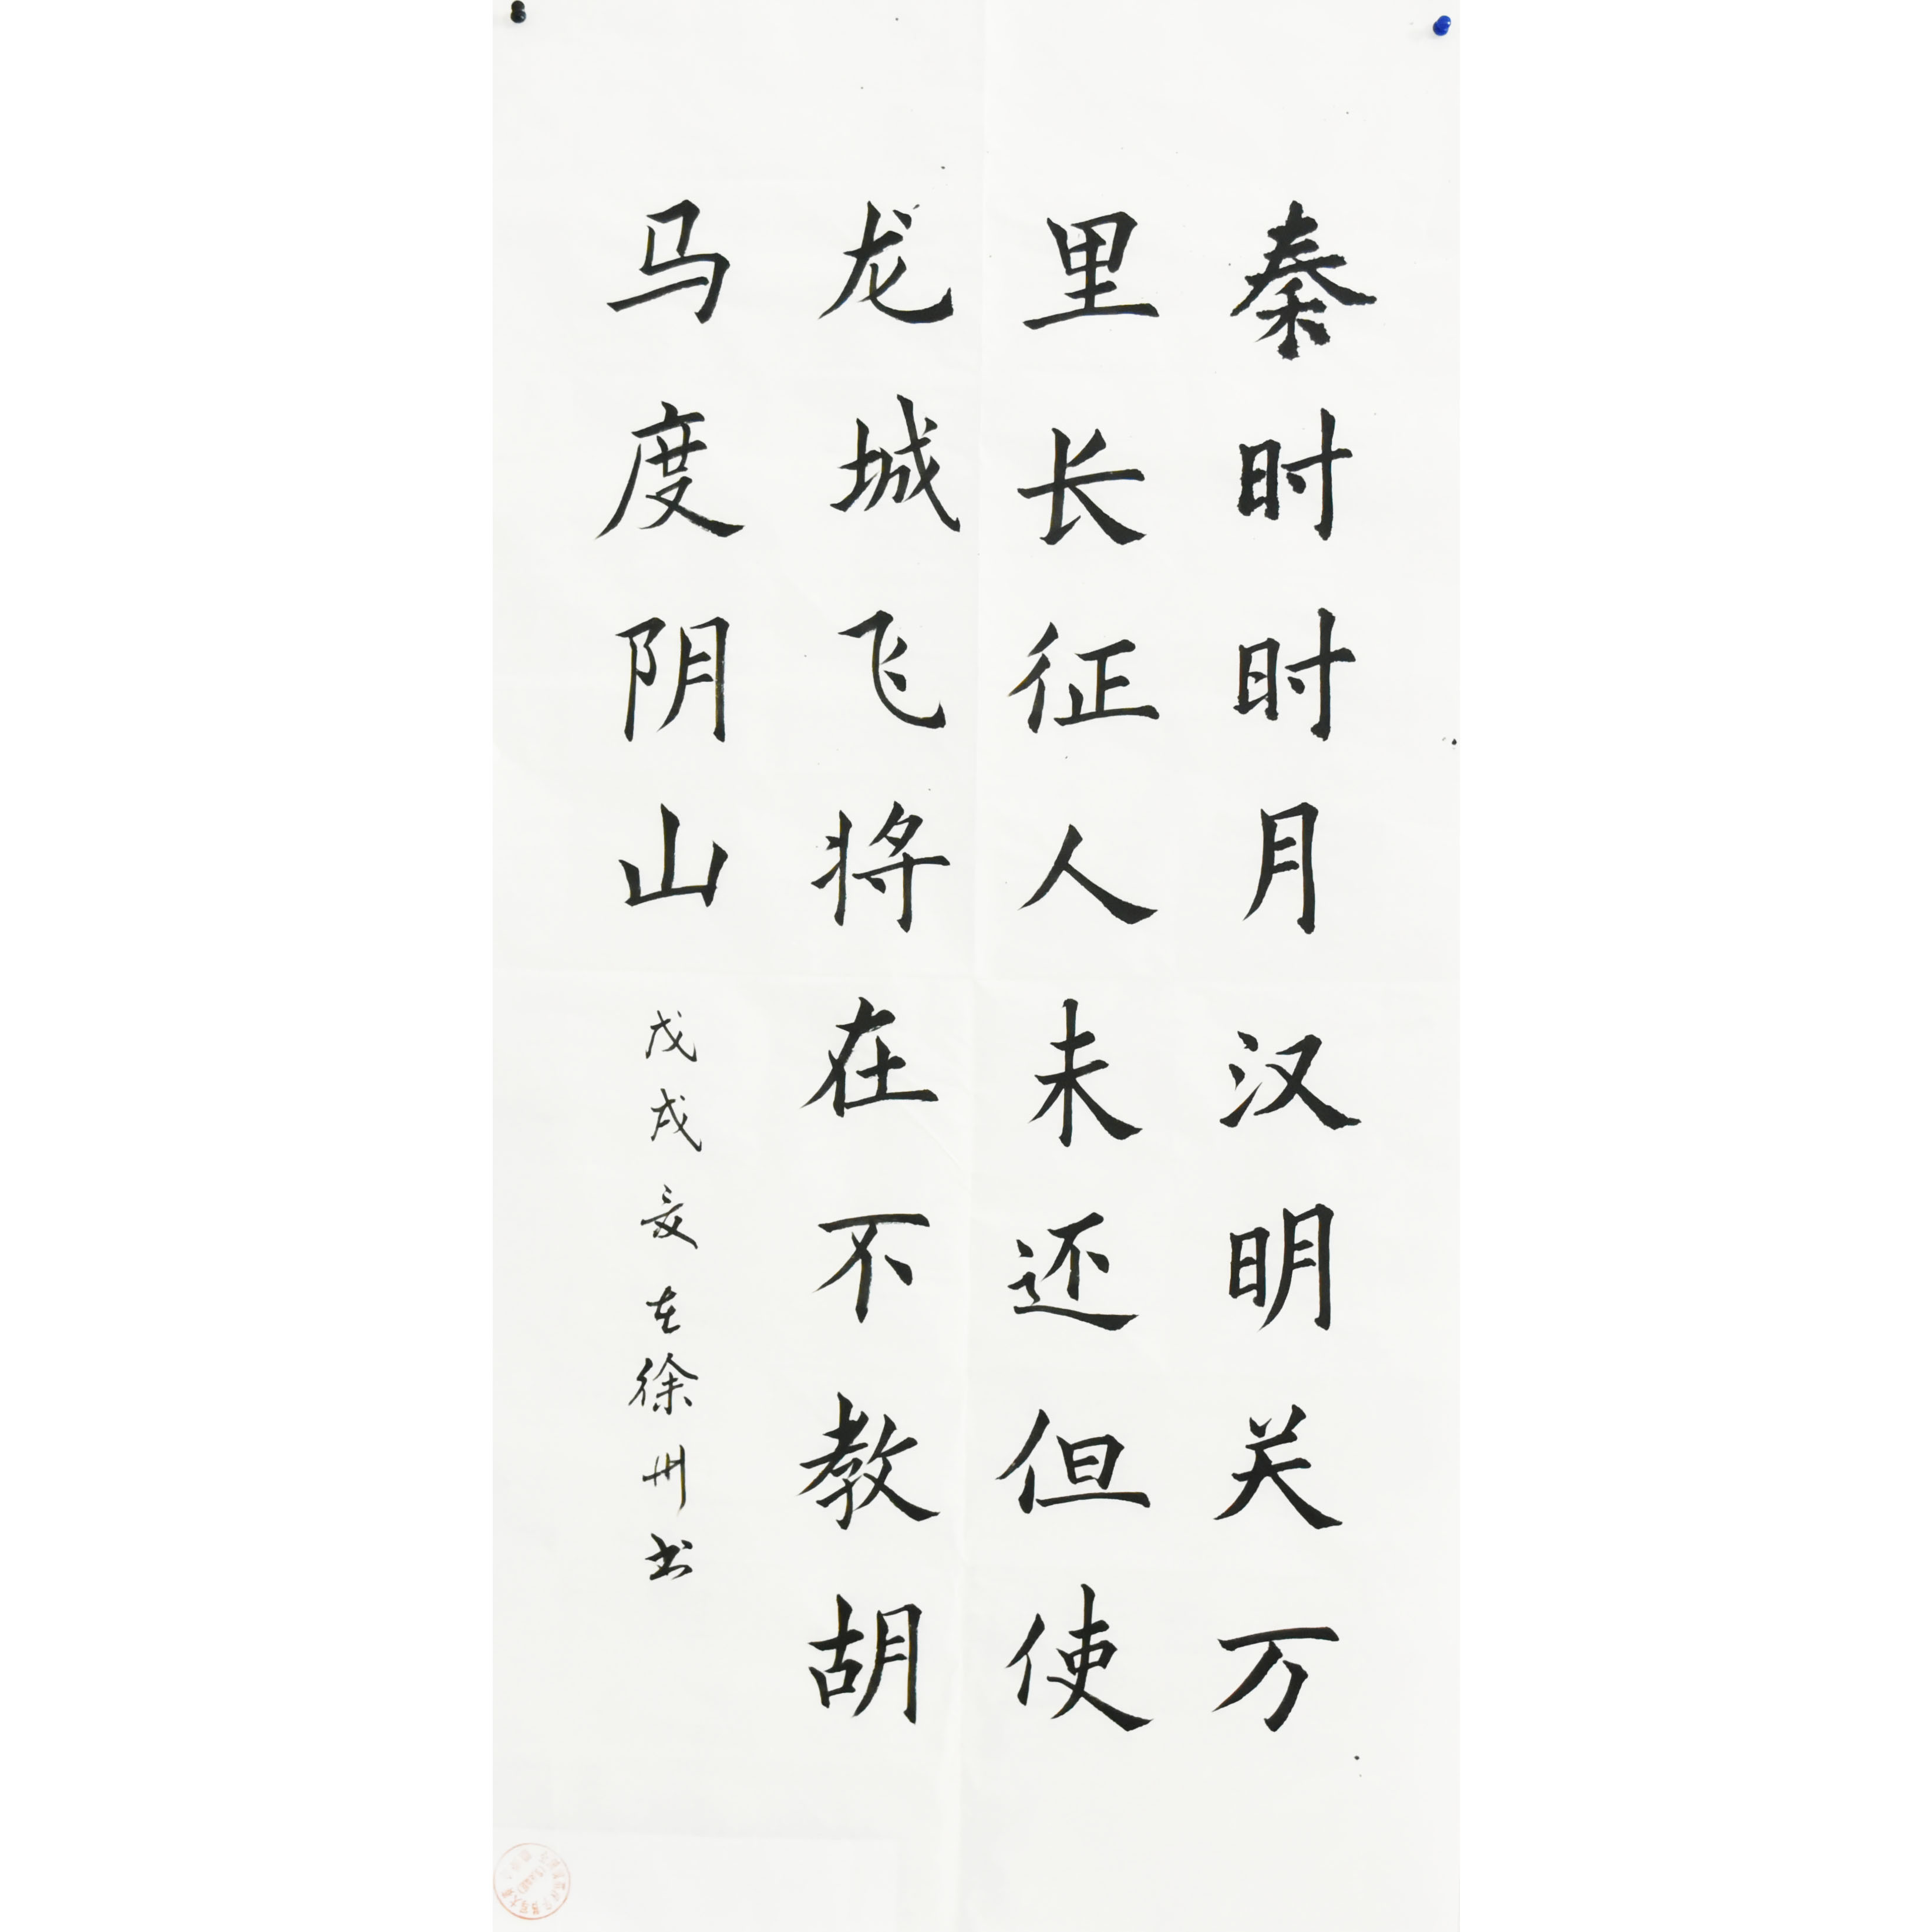 秦时时月汉明关万
里长征人未还但使
龙城飞将在不教胡
马度阴山
戊戌夏在徐州书